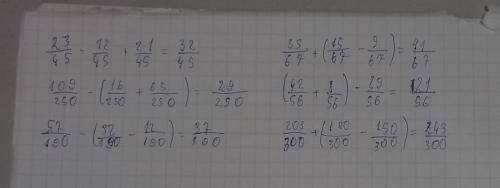 23/45 - 12/45 + 21/45 = 32/45
109/250 - (16/250 + 65/250) = 29/250
57/190 - (32/190 - 12/190) = 37/190
35/67 + (15/67 - 9/67) = 41/67
(42/56 + 8/56) - 29/56 = 21/56
203/300 + (190/300 - 150/300) = 243/300